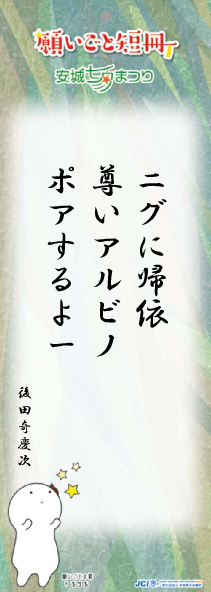 願いごと短冊
安城七夕まつり
ニグに帰依
尊いアルビノ
ポアするよー
後田奇慶次
JCI